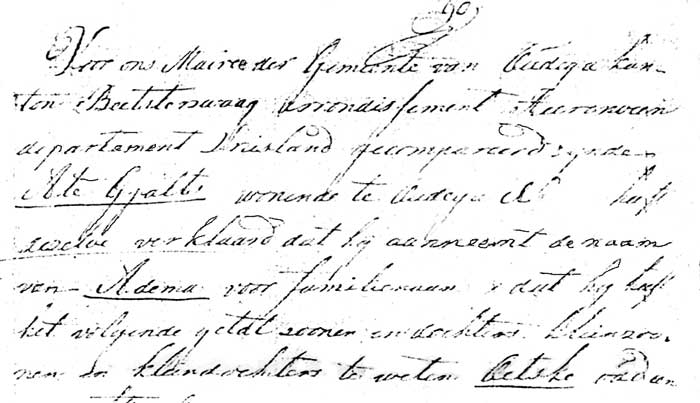 90
Voor ons Maire der Gemeente van Oudega kan-
ton Beetsterswaag arrondissement Heerenveen
departement Vriesland gecompareerd zynde
Ate Gjalts wonende te Oudega heeft
deselve verklaard dat hy aanneemt de naam
van Adema voor familienaam dat hy heeft
het volgende getal zoonen en dochters kleinzoo-
nen en kleindochters te weten Oetske oud een